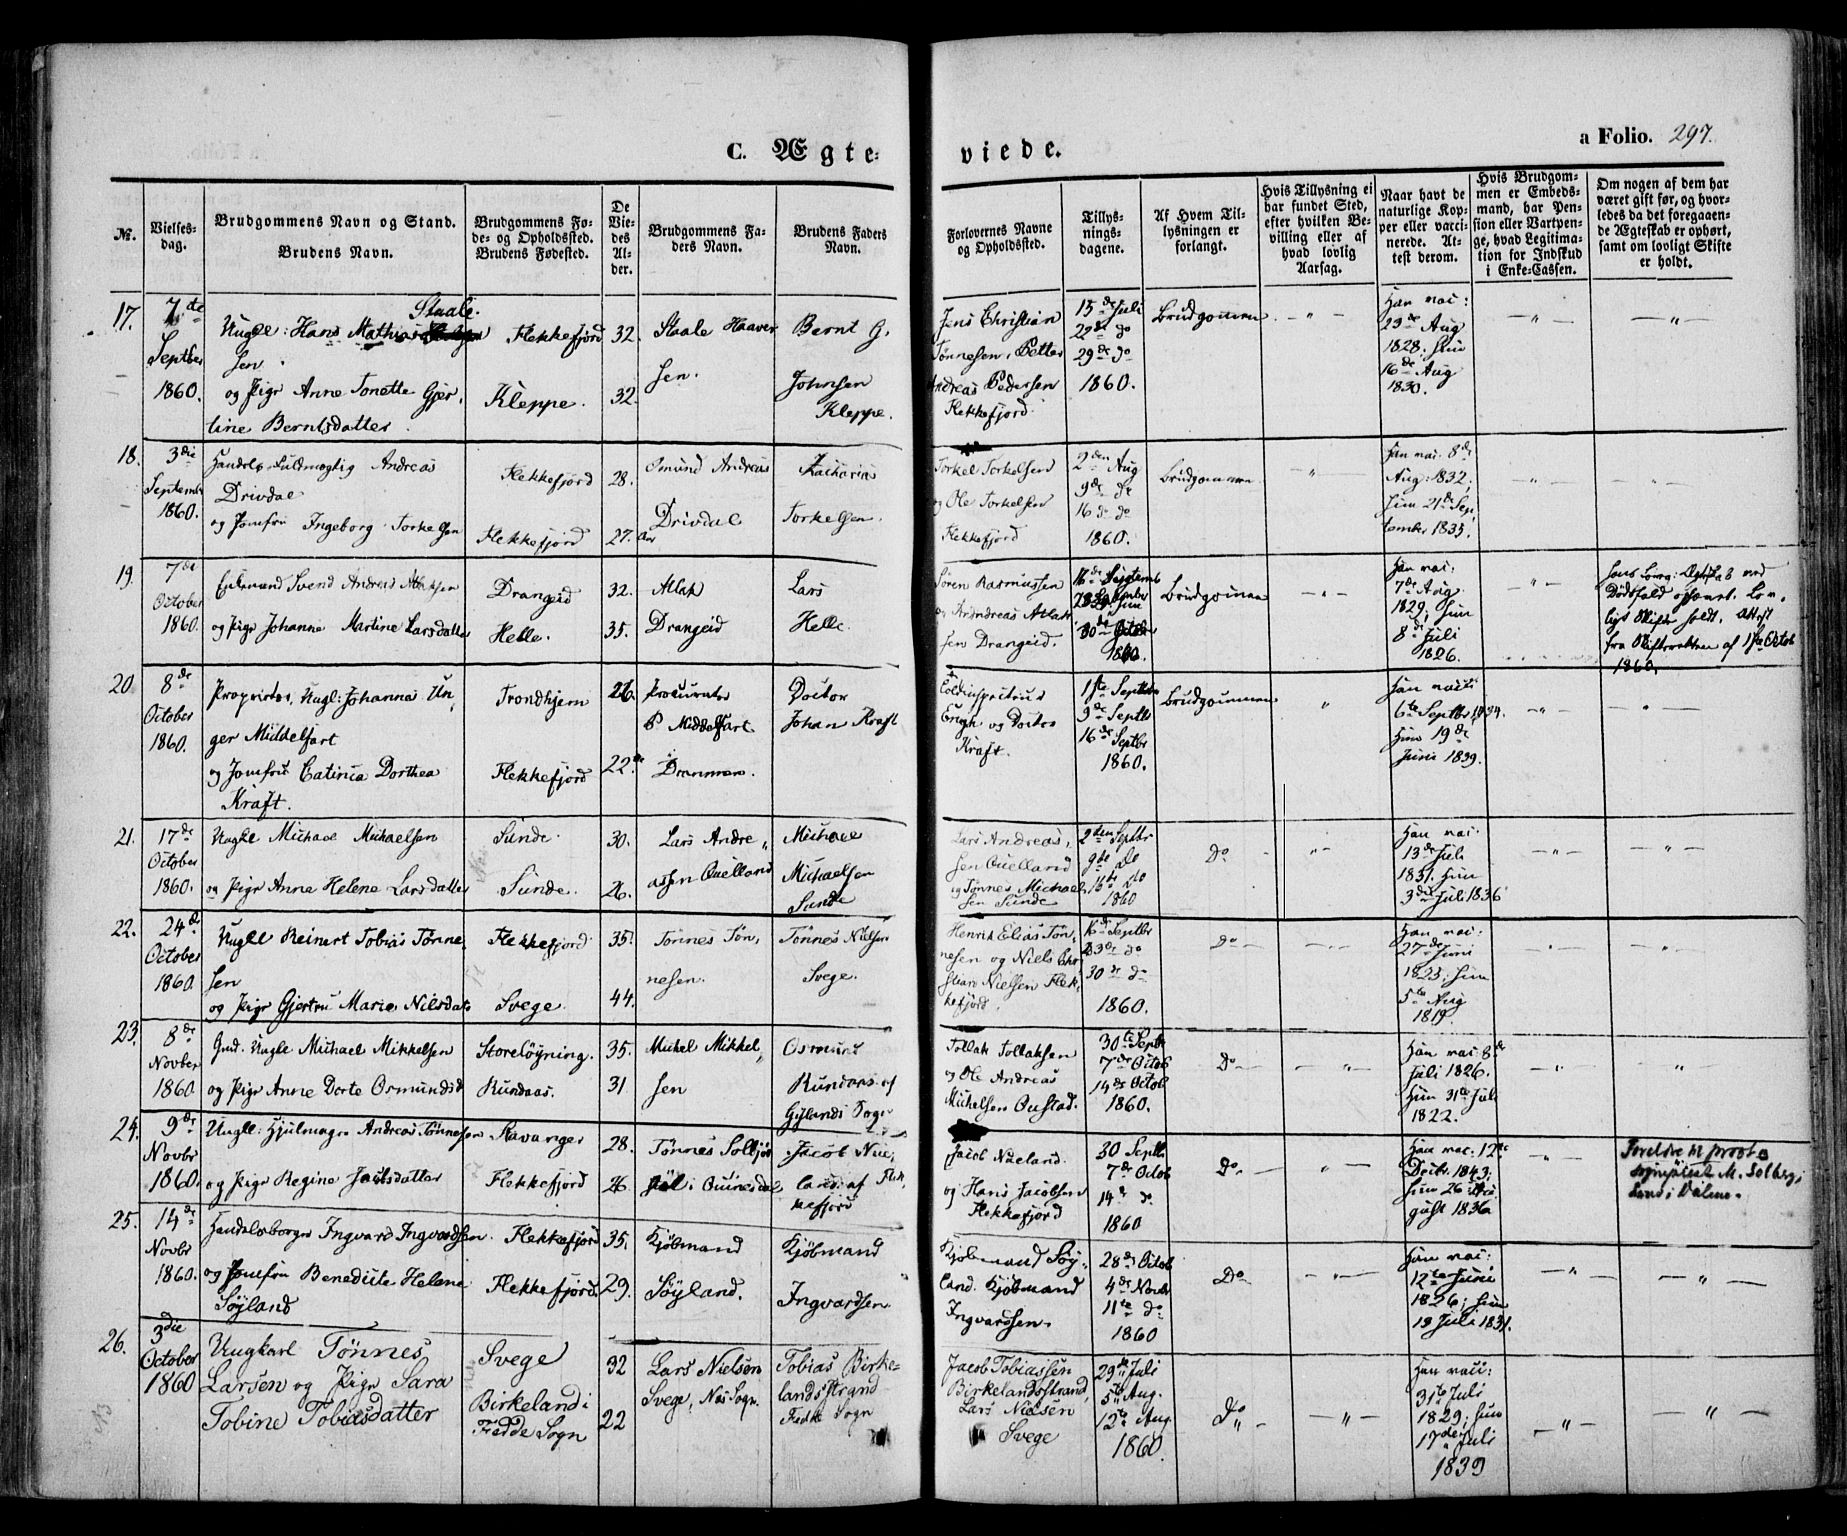 C. Ægte-
viede.
a Folio. 297.
№.
Vielses-
dag.
Brudgommens Navn og Stand.
Brudens Navn.
Brudgommens Fø-
de- og Opholdssted.
Brudens Fødested.
De
Vie-
des
Al-
der.
Brudgommens Fa-
ders Navn.
Brudens Faders
Navn.
Forlovernes Navne
og Opholdssted.
Tillys-
nings-
dagene.
Af Hvem Til-
lysningen er
forlangt.
Hvis Tillysning ei
har fundet Sted,
efter hvilken Be-
villing eller af
hvad lovlig
Aarsag.
Naar havt de
naturlige Kop-
per eller vacci-
nerede. At-
test derom.
Hvis Brudgom-
men er Embeds-
mand, har Pen-
sion eller Vartpen-
ge, hvad Legitima-
tion for Indskud
i Enke-Cassen.
Om nogen af dem har
været gift før, og hvor-
ledes da det foregaaen-
de Ægteskab er ophørt,
samt om lovligt Skifte
er holdt.
17.
7de
Septber
1860.
Staale.
Ungkl: Hans Mathias
sen
og Pige Anne Tonette Gjer,
tine Berntsdatter.
Flekkefjord
Kleppe.
32.
32.
Staale Haaver
sen.
Bernt G.
Johnsen
Kleppe.
Jens Christian
Tønnesen, Petter
Andreas Pedersen
Flekkefjord
15de Juli
22de do
29de do
1860.
Brudgommen
Han vac:
23de Aug
1828; hun
16de Aug
1830.
18.
3die
Septembr
1860.
Handels-Fuldmægtig Andreas
Drivdal
og Jomfru Ingeborg Torkelsen
Flekkefjord
Flekkefjord
28.
27. Aar
Osmund Andreas
Drivdal
Zacharias
Torkelsen.
Torkel Torkelsen
og Ole Torkelsen
Flekkefjord
2den Aug
9de do
16 do do
1860.
Brudgommen
Han vac. 8de
Aug: 1832;
hun 21de Sep
tember 1835.
19.
7de
October
1860.
Enkemand Svend Andreas Atlaksen
og Pige Johanne Martine Larsdatter
Drangeid
Helle.
32.
35.
Atlak
Drangeid
Lars
Helle.
Søren Rasmussen
og Andreas Atlak
sen Drangeid.
16de Septemb
30de Octob
1860.
Brudgommen
Han vac:
7de Aug
1829; hun
8de Juli
1826.
Hans forrig: Ægteskab ved
Dødsfald ophævet. Lov,
ligt Skifte holdt. Attest
fra Skifteretten af 1ste Octob
1860.
20
8de
October
1860.
Proprietær, Ungl: Johannes Un,
ger Middelfart
og Jomfru Catinca Dorthea
Kraft.
Trondhjem
Flekkefjord
26.
22.
Procurator
P Middelfart
Drammen.
Doctor
Johan Kraft
Toldinspecteur
Erigh og Doctor
Kraft.
1ste Septbr
9de Septbr
16de Septbr
1860.
Brudgommen
Han vacci
6te Septbr 1834.
Hun 19de
Juni 1839.
21.
17de
October
1860.
Ungkl Michael Michaelsen
og Pige Anne Helene Larsdatter
Sunde.
Sunde.
30.
26.
Lars Andre,
assen Quelland
Michael
Michaelsen
Sunde
Lars Andreas,
sen Quelland
og Tønnes Michael
sen Sunde
2den Septbr
9de Do
16de Do
1860
Do
Han vac:
13de Juli
1831. hun
3die Juli 1836
22.
24de
October
1860.
Ungkl Reinert Tobias Tønne,
sen
og Pige Gjertru Marie Nilsdat
Flekkefjord
Svege.
35.
44.
Tønnes Tøn,
nesen.
Tønnes Nielsen
Svege.
Henrik Elias Tøn,
nesen og Niels Chr
stian Nielsen Flek,
kefjord.
16de Septbr
23de do
30de do
1860.
Do
Han vac:
27de Juni
1823; hun
5te Aug
1819.
23.
8de
Novber
1860
Gmd. Ungkl Michael Mikkelsen
og Pige Anne Dorte Osmundsd
Storeløgning.
Rundaas.
35.
31
Michel Mikkel,
sen
Osmund
Rundaas af
Gylands Sogn
Tollak Tollaksen
og Ole Andreas
Michelsen Oustad.
30te Septb
7de Octob
14de Octob
1860.
Do
Han vac: 8de
Juli 1826.
Hun 31te Juli
1822.
24.
9de
Novbr
1860.
Ungkl: Hjulmager Andreas Tønnesen
og Pige Regine Jacobsdatter
Stavanger
Flekkefjord
28.
26
Tønnes Solbjør
i Quinesdal
Jacob Nue,
land af Flek,
kefjord
Jacob Nueland.
og Hans Jacobsen
Flekkefjord
30 Septb
7de Octob
14de do
1860
Do
Han vac: 12te
Decbr. 1843;
hun 26 Au
gust 1836
25.
14de
Novbr
1860.
Handelsborger Ingvard Ingvardsen.
og Jomfru Benedicte Helene
Søyland
Flekkefjord
Flekkefjord.
35.
29.
Kjøbmand
Søyland.
Kjøbmand
Ingvardsen
Kjøbmand Søy,
land. Kjøbmand
Ingvardsen.
28de Octob
4de Novbr
11te do
1860
Do
Han vac:
12te Juni
1826; hun
19 Juli 1831.
26.
3die
October
1860
Ungkarl Tønnes
Larsen og Pige Sara
Tobine Tobiasdatter
Svege
Birkeland i
Fedde Sogn
32
22
Lars Nielsen
Svege, Næs Sogn.
Tobias Birke-
landsstrand
Fedde Sogn
Jacob Tobiassen
Birkelandsstrand,
Lars Nielsen
Svege
29de Juli
5te Aug.
12te Aug.
1860.
Do
Han vacc:
31te Juli
1829; hun
17de Juli
1839